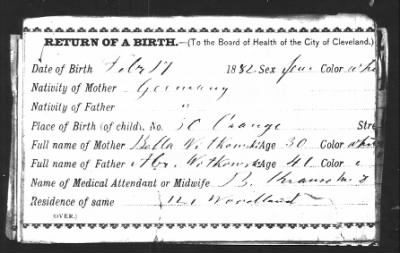 RETURN OF A BIRTH.—(To the Board of Health of the City of Cleveland.)
Date of Birth Febr 17 1882 Sex Fem Color whi
Nativity of Mother Germany
Nativity of Father "
Place of Birth (of child). No. 50 Orange Stre
Full name of Mother Bella Age 30 Color whi
Full name of Father Abr. Wotkows Age 40 C
Name of Medical Attendant or Midwife B.
Residence of same Woodland
(OVER.)